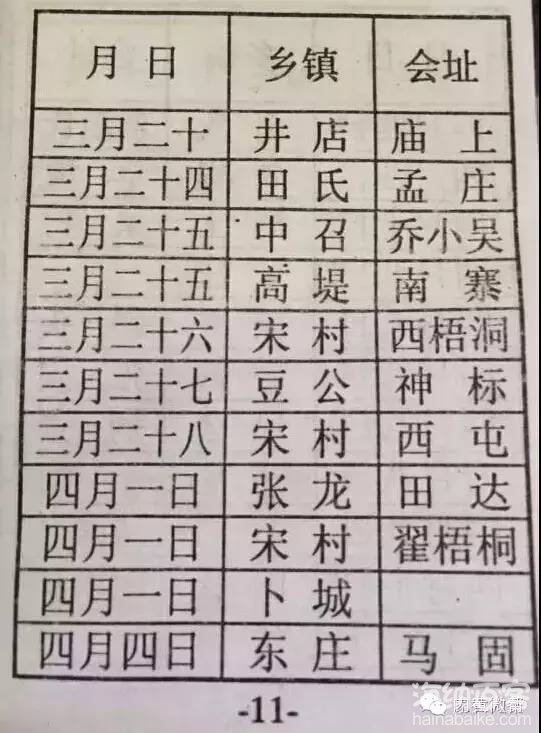 月 日 乡镇 会址
三月二十 井店 庙上
三月二十四 田氏 孟庄
三月二十五 中召 乔小吴
三月二十五 高堤 南寨
三月二十六 宋村 西梧洞
三月二十七 豆公 神标
三月二十八 宋村 西屯
四月一日 张龙 田达
四月一日 宋村 翟梧桐
四月一日 卜城
四月四日 东庄 马固
-11-
hainabaike.com